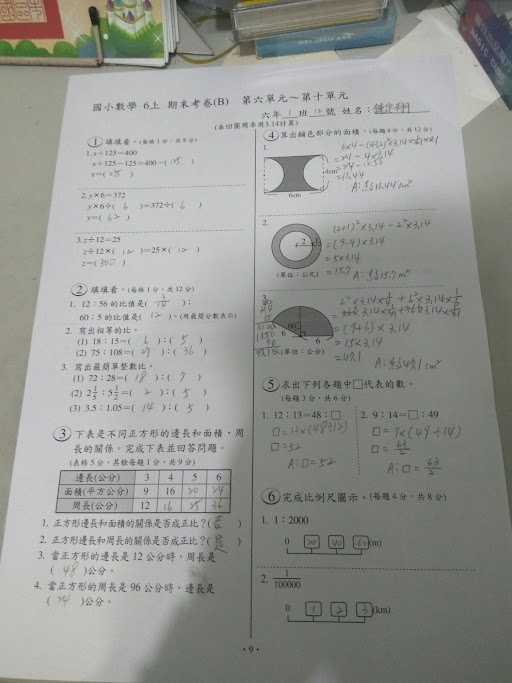 國小數學 6上 期末考卷(B) 第六單元～第十單元
六年 1 班 號 姓名：
(本回圓周率用3.14計算)
① 填填看。(每格1分，共8分)
1. x＋125＝400
x＋125－125＝400－( 125 )
x＝( 275 )
2. y×6＝372
y×6÷( 6 )＝372÷( 6 )
y＝( 62 )
3. z÷12＝25
z÷12×( 12 )＝25×( 12 )
z＝( 300 )
② 填填看。(每格1分，共12分)
1. 12：56的比值是( 3/14 )；
60：5的比值是( 12 )。(用最簡分數表示)
2. 寫出相等的比。
(1) 18：15＝( 6 )：( 5 )
(2) 75：108＝( )：( 36 )
3. 寫出最簡單整數比。
(1) 72：28＝( 18 )：( 7 )
(2) 2 1/5：5 1/2＝( 2 )：( 5 )
(3) 3.5：1.05＝( 14 )：( 5 )
③ 下表是不同正方形的邊長和面積、周
長的關係。完成下表並回答問題。
(表格5分，其餘每題1分，共9分)
邊長(公分) 3 4 5 6
面積(平方公分) 9 16 20 24
周長(公分) 12 16 25 36
1. 正方形邊長和面積的關係是否成正比？( 否 )
2. 正方形邊長和周長的關係是否成正比？( 是 )
3. 當正方形的邊長是12公分時，周長是
( 48 )公分。
4. 當正方形的周長是96公分時，邊長是
( 24 )公分。
④ 算出鋪色部分的面積。(每題4分，共12分)
1.
4cm
6cm
＝24－4×3.14
＝24－12.56
＝11.44
A：約11.44cm²
2.
2 1
(單位：公尺)
(2+1)²×3.14－2²×3.14
＝(9-4)×3.14
＝5×3.14
＝15.7
A：約15.7m²
3.
60°
6 6
(單位：公分)
＝(9+6)×3.14
＝15×3.14
＝47.1
A：約47.1cm²
⑤ 求出下列各題中□代表的數。
(每題3分，共6分)
1. 12：13＝48：□
□＝13×(48÷12)
□＝52
A：□＝52
2. 9：14＝□：49
□＝9×(49÷14)
□＝63/2
A：□＝63/2
⑥ 完成比例尺圖示。(每題4分，共8分)
1. 1：2000
0 20 40 60 (m)
2. 1/100000
0 1 2 3 (km)
·9·